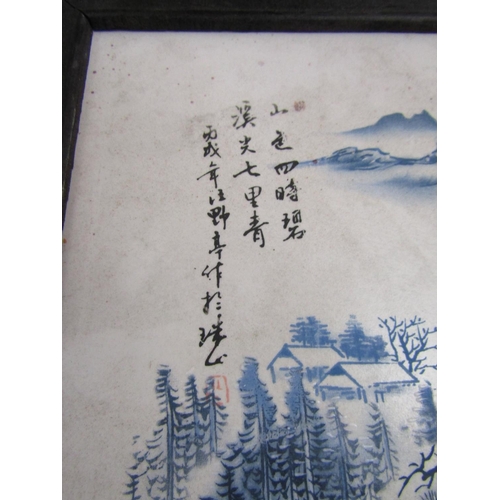 山色四時碧
溪光七里青
丙戌年汪野亭作於珠山